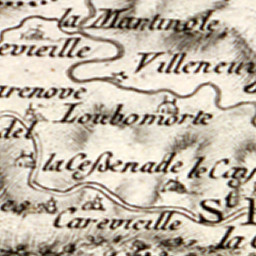 la Martingle,
evieille
Villeneuv
arenove
Loubomorte
del
la Ceßenade
le Cay
St
Carevieille
la C